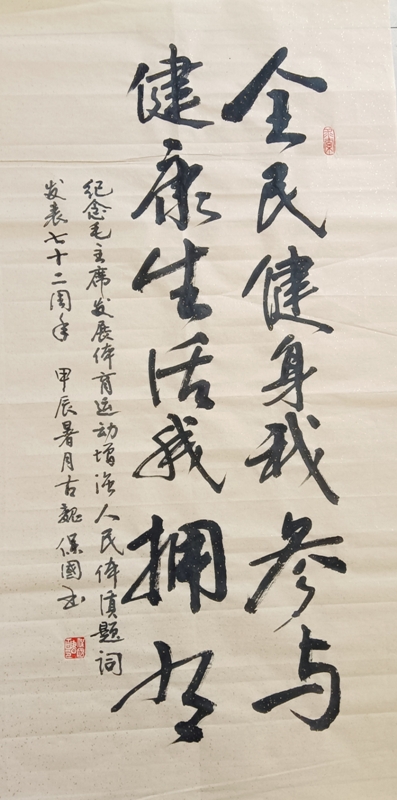 全民健身我参与
健康生活我拥有
纪念毛主席发展体育运动增强人民体质题词
发表七十二周年 甲辰暑月古魏保国书